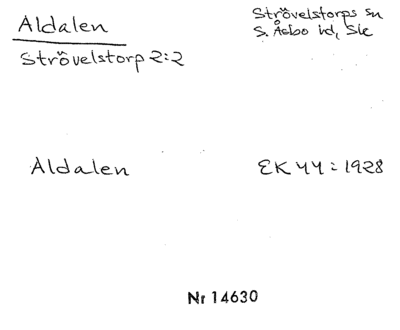 Aldalen
Strövelstorps sn
S. Åsbo hd, Sk
Strövelstorp 2:2
Aldalen
EK 44:1928
Nr 14630